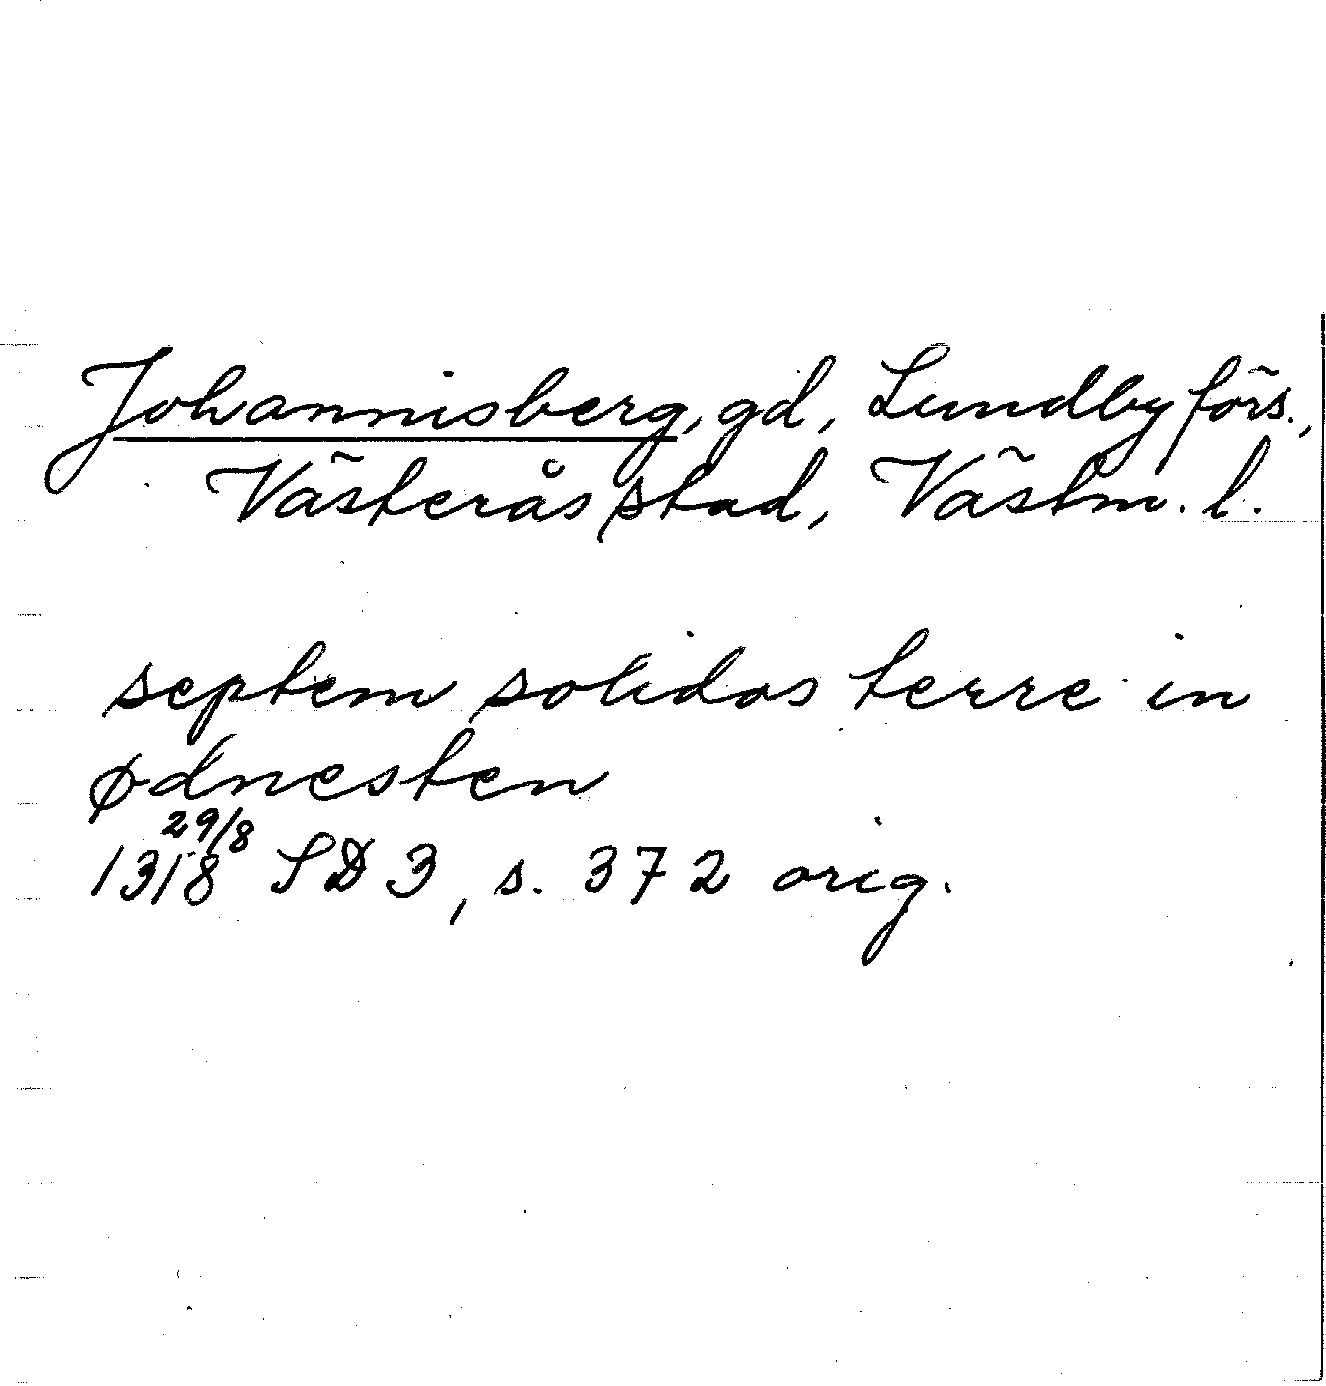 Johannisberg, gd, Lundby förs.,
Västerås stad, Västm. l.
septem solidos terre in
Ødnesten
29/8
1318 SD 3, s. 372 orig.